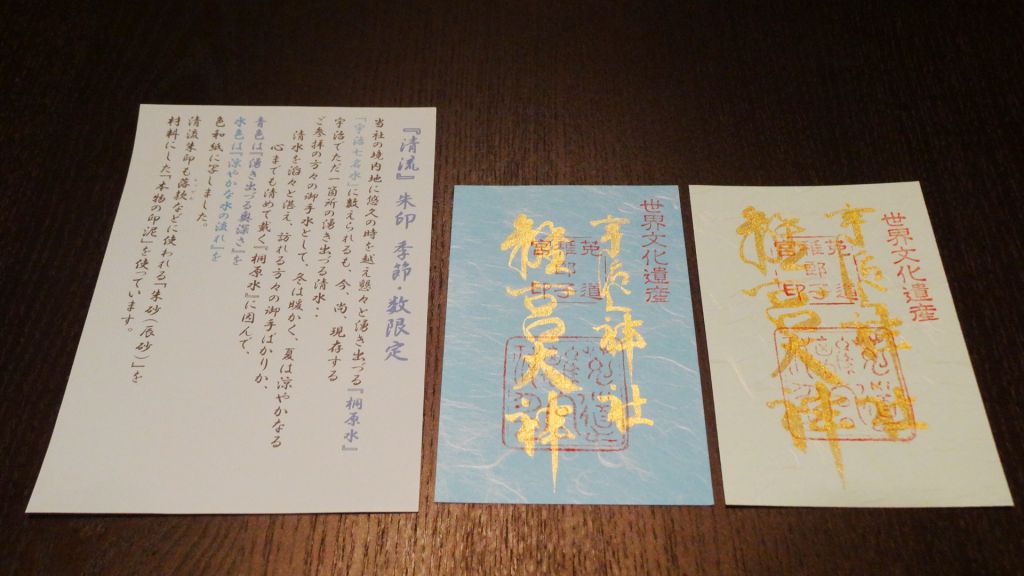 『清流』朱印 季節・数限定
当社の境内地に悠久の時を越え懸々と湧き出づる『桐原水』
「宇治七名水」に数えられるも、今、尚、現存する
宇治でただ一箇所の湧き出づる清水‥
ご参拝の方々の御手水として、冬は暖かく、夏は涼やかなる
清水を滔々と湛え、訪れる方々の御手ばかりか、
心までも清めて戴く『桐原水』に因んで、
青色は『湧き出づる奥深さ』を
水色は『涼やかな水の流れ』を
色和紙に写しました。
清流朱印も落款などに使われる『朱砂(辰砂)』を
材料にした『本物の印泥』を使っています。
世界文化遺産
宇治上神社
離宮大神
菟道
稚郎子
宮印
世界文化遺産
宇治上神社
離宮大神
菟道
稚郎子
宮印